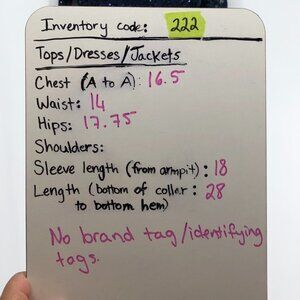 Inventory code: 222
Tops/Dresses/Jackets
Chest (A to A): 16.5
Waist: 14
Hips: 17.75
Shoulders:
Sleeve length (from armpit): 18
Length (bottom of collar : 28
to bottom hem)
No brand tag/identifying
tags.